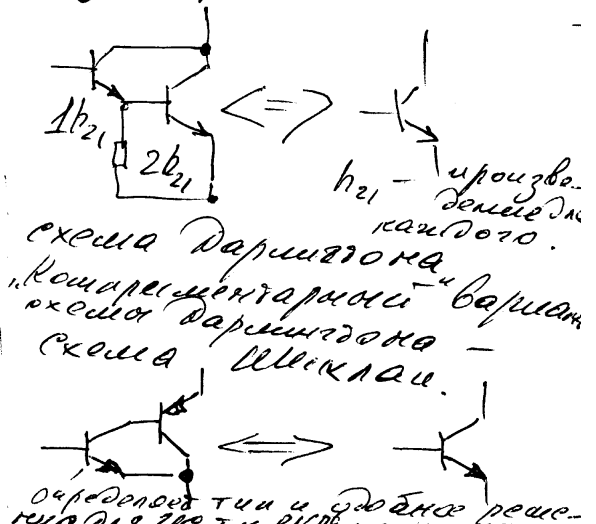 1h21
2h21
h21 — произве-
дение для
каждого.
схема Дарлингтона
„Комплементарный" вариант
схемы Дарлингтона —
схема Шиклаи.
определяет тип и удобное реше-